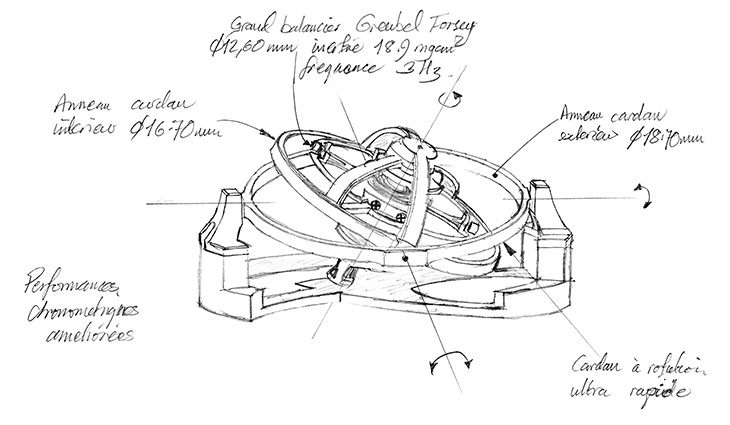 Grand balancier Greubel Forsey
Ø12,60mm inertie 18.9 mgcm²
fréquence 3Hz
Anneau cardan
intérieur Ø16.70mm
Anneau cardan
extérieur Ø18.70mm
Performances
chronométriques
améliorées
Cardan à rotation
ultra rapide